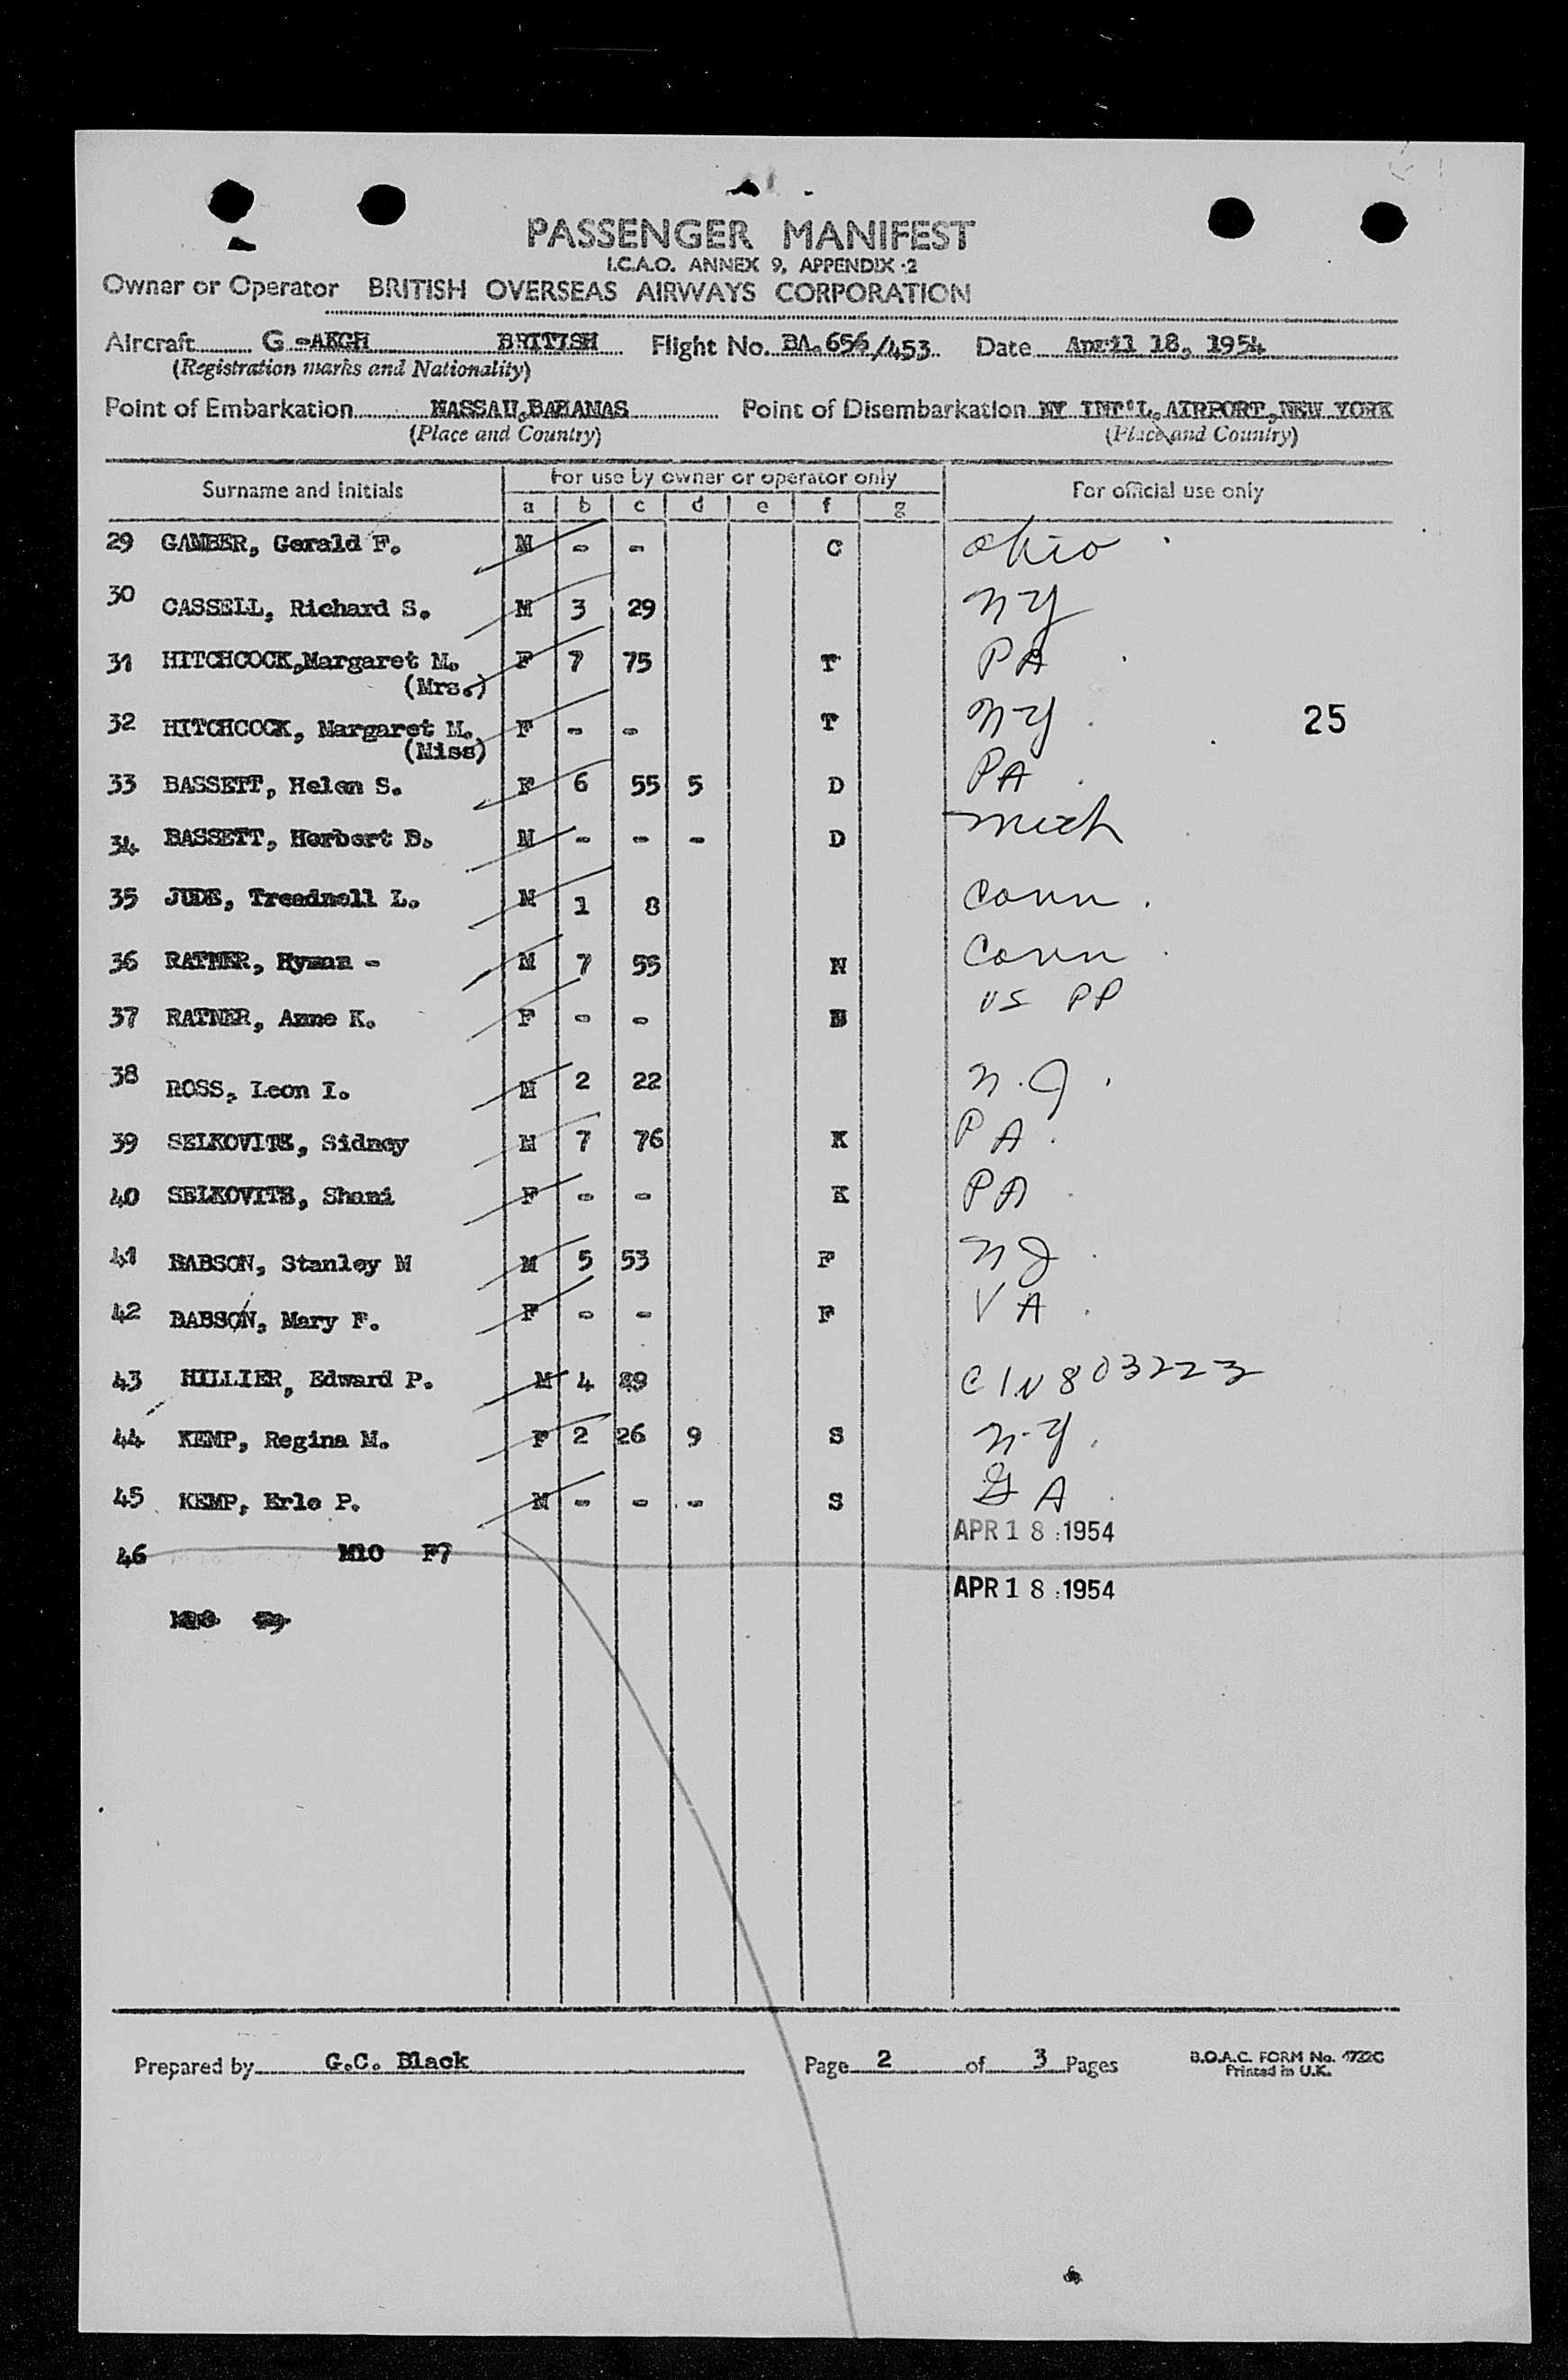 PASSENGER MANIFEST
I.C.A.O. ANNEX 9, APPENDIX 2
Owner or Operator BRITISH OVERSEAS AIRWAYS CORPORATION
Aircraft G -AKGH BRITISH Flight No. BA.656/453 Date April 18, 1954
(Registration marks and Nationality)
Point of Embarkation NASSAU,BAHAMAS Point of Disembarkation NY INT'L.AIRPORT,NEW YORK
(Place and Country) (Place and Country)
Surname and Initials For use by owner or operator only For official use only
a b c d e f g
29 GAMBER, Gerald F. M - - C Ohio
30 CASSELL, Richard S. M 3 29 NY
31 HITCHCOCK,Margaret M. F 7 75 T PA
(Mrs.)
32 HITCHCOCK, Margaret M. F - - T NY 25
(Miss)
33 BASSETT, Helen S. F 6 55 5 D PA
34 BASSETT, Herbert D. M - - - D Mich
35 JUDE, Treadwell L. M 1 8 Conn.
36 RATNER, Hyman - M 7 55 N Conn
37 RATNER, Anne K. F - - N US PP
38 ROSS, Leon I. M 2 22 N.J.
39 SELKOVITS, Sidney M 7 76 K PA
40 SELKOVITS, Shami F - - K PA
41 BABSON, Stanley M M 5 53 F NJ
42 BABSON, Mary F. F - - F VA
43 HILLIER, Edward P. M 4 CIN803223
44 KEMP, Regina M. F 2 26 9 S N.Y.
45 KEMP, Erle P. M - - - S GA
APR 18 1954
46 M10 F7
APR 18 1954
Prepared by G.C. Black Page 2 of 3 Pages B.O.A.C. FORM No. 1722C
Printed in U.K.